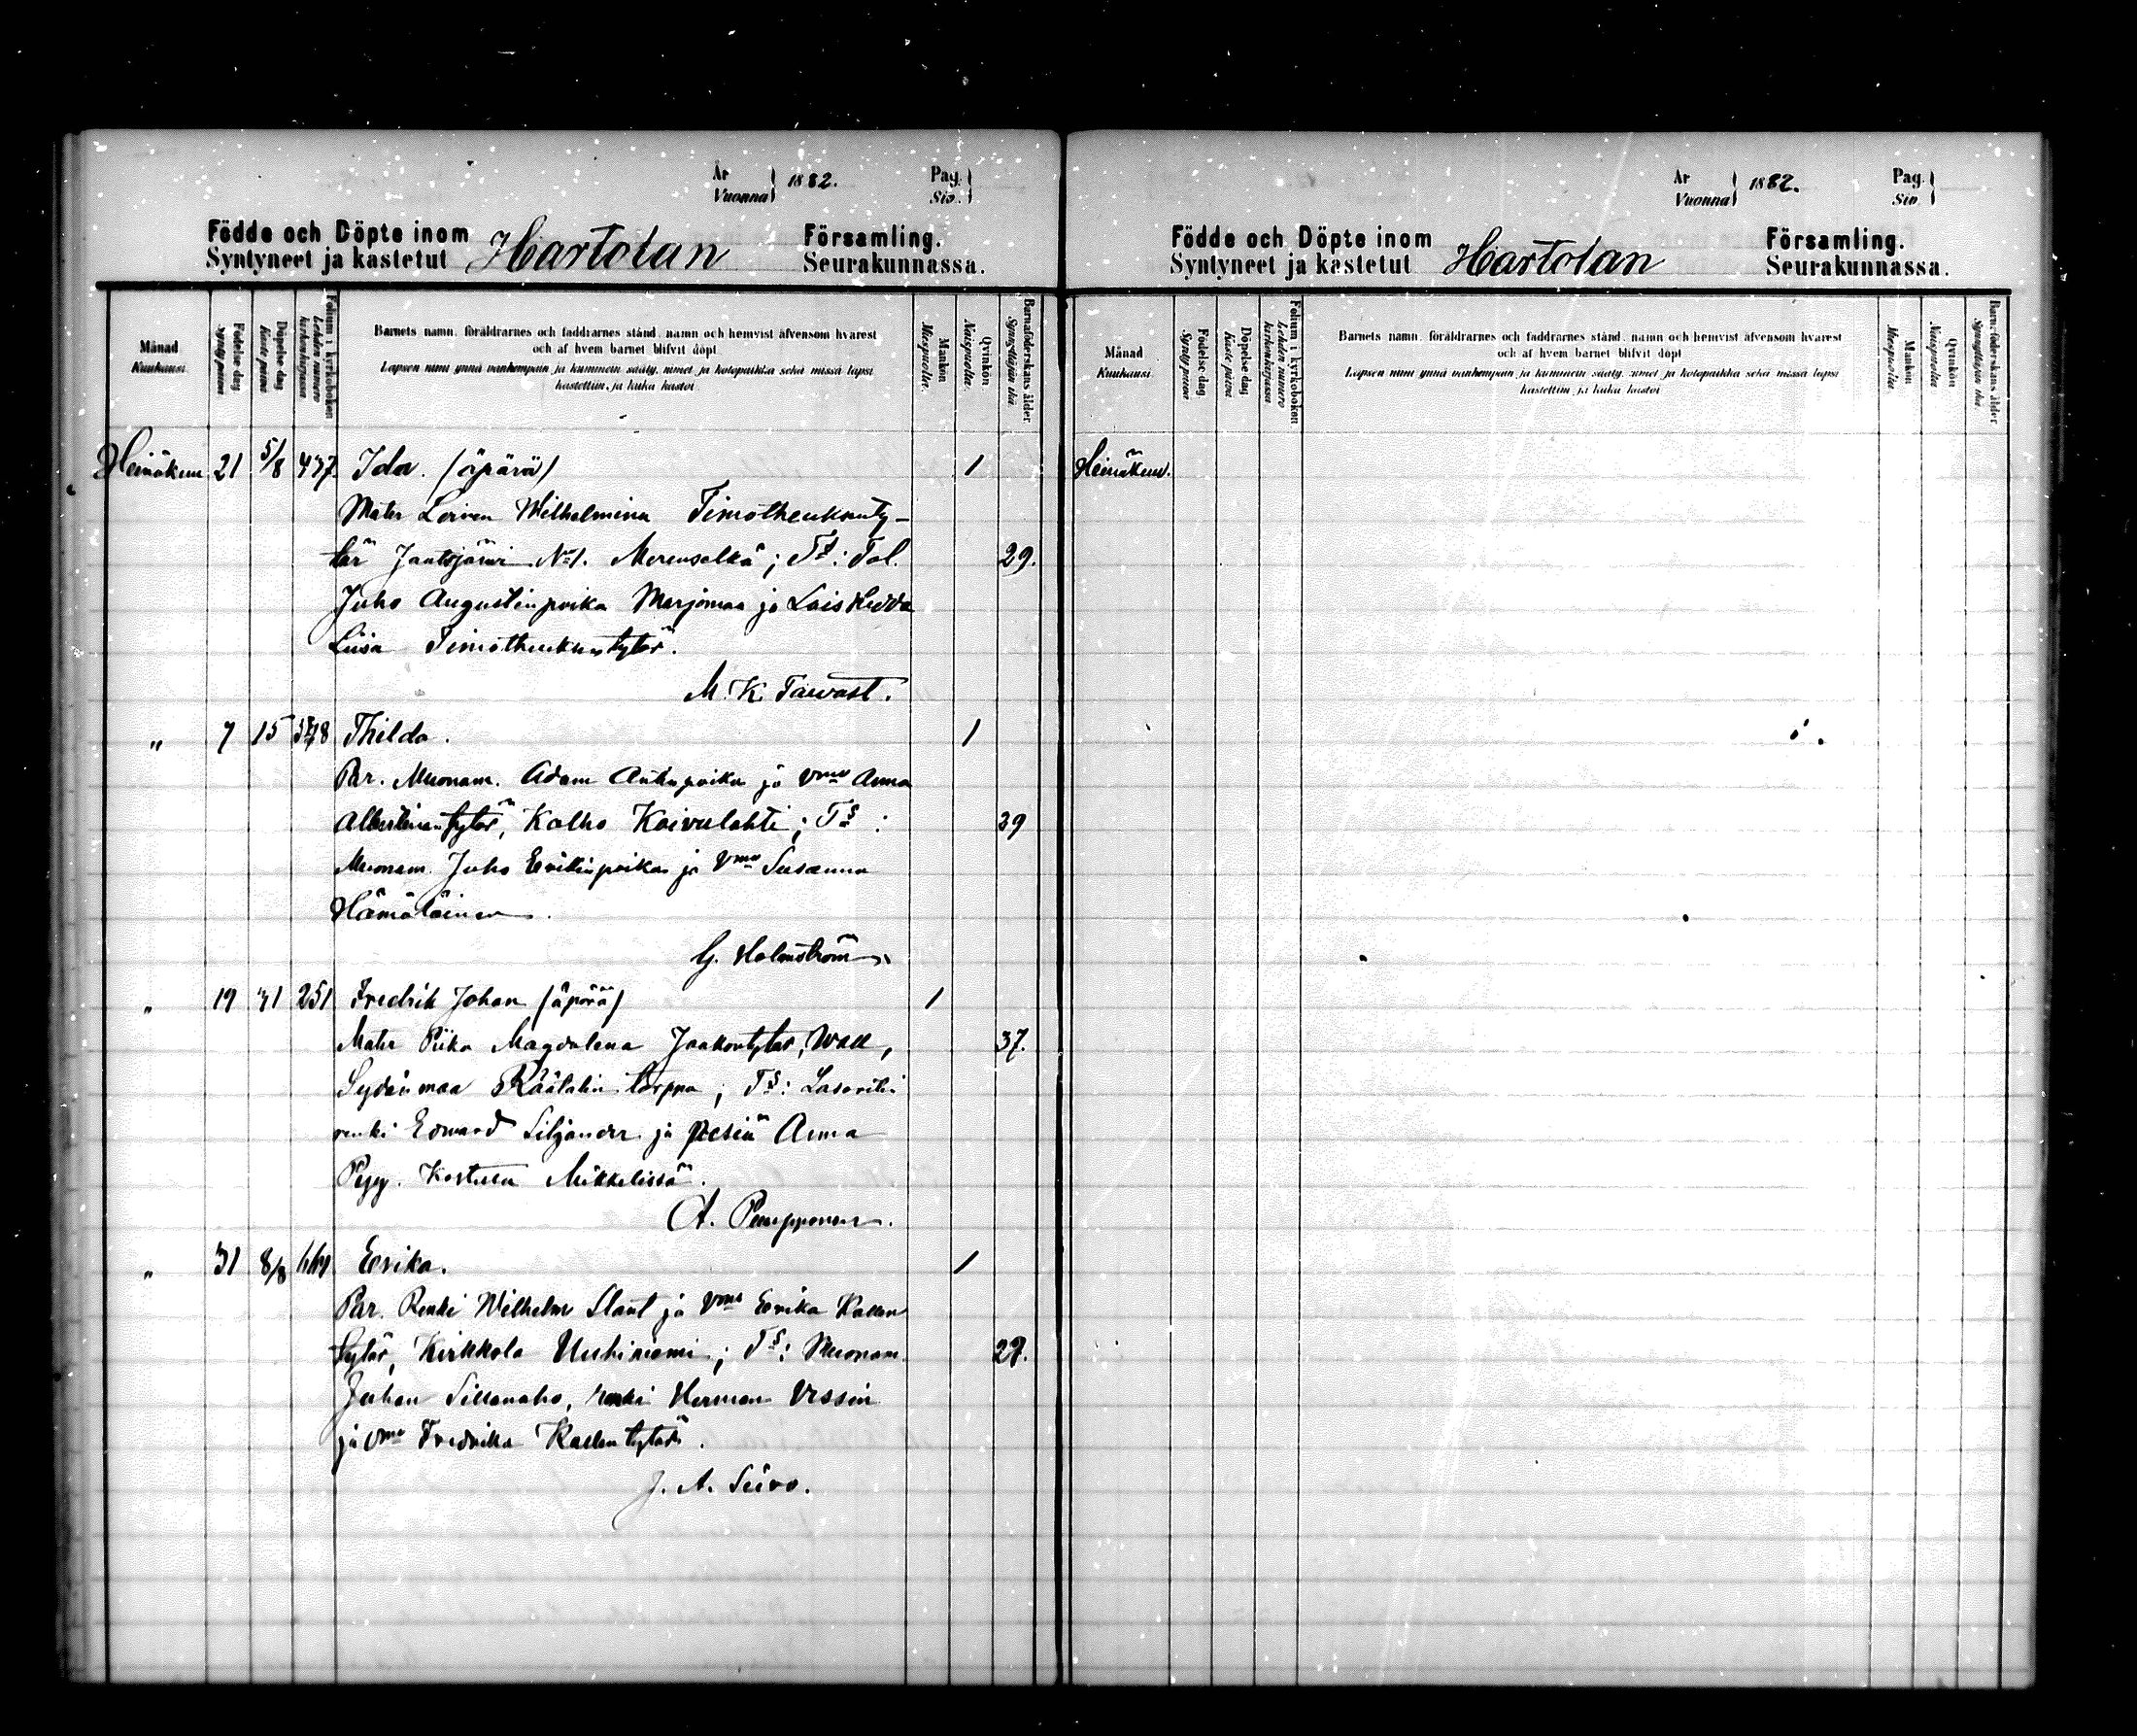 År
Vuonna } 1882.
Pag.
Siv. }
Födde och Döpte inom
Syntyneet ja kastetut
Hartolan
Församling.
Seurakunnassa.
Månad
Kuukausi.
Födelse dag.
Syntypäivä
Döpelse dag
Kastepäivä
Folium i kyrkoboken
Lehden numero kirkonkirjassa
Barnets namn, föräldrarnes och faddrarnes stånd, namn och hemvist äfvensom hvarest
och af hvem barnet blifvit döpt.
Lapsen nimi ynnä vanhempain ja kummein sääty, nimet ja kotopaikka sekä missä lapsi
kastettiin ja kuka kastoi.
Mankön
Miespuolia.
Qvinkön
Naispuolia.
Barnaföderskans ålder
Synnyttäjän ikä.
Heinäkuu 21 5/8 437. Ida. (äpärä) 1
Mater Loinen Wilhelmina Timotheuksenty-
tär Jantsjärvi No 1. Merenselkä; Tt: Tal. 29.
Juho Augustinpoika Marjomaa ja Lois Hedda
Liisa Timotheuksentytär.
M. K. Tawast.
" 7 15 Thilda. 1
Par. Muonam. Adam Antinpoika ja Vmo Anna
Albertinantytär, Kalho Koivulahti; Ts: 39
Muonam. Juho Erikinpoika ja Vmo Susanna
Hämäläinen.
G. Holmström.
" 19 31 251 Fredrik Johan (äpärä) 1
Mater Piika Magdalena Jaakontytär, Wall, 37.
Sydänmaa Räätälin torppa; Ts:
renki Edward Siljander ja Anna
Kastettu Mikkelissä.
A. Pemppones.
" 31 8/8 Eerika. 1
Par. Renki Wilhelm Slant ja Vmo Eerika Kallen
tytär, Kirkkola Uuhiniemi; Ts: Muonam. 27.
Juhan Sillanaho, renki Herman Vessin
ja Vmo Fredrika Kallentytär.
J. A. Siivo.
År
Vuonna } 1882.
Pag.
Siv. }
Födde och Döpte inom
Syntyneet ja kastetut
Hartolan
Församling.
Seurakunnassa.
Månad
Kuukausi.
Födelse dag.
Syntypäivä
Döpelse dag
Kastepäivä
Folium i kyrkoboken
Lehden numero kirkonkirjassa
Barnets namn, föräldrarnes och faddrarnes stånd, namn och hemvist äfvensom hvarest
och af hvem barnet blifvit döpt.
Lapsen nimi ynnä vanhempain ja kummein sääty, nimet ja kotopaikka sekä missä lapsi
kastettiin ja kuka kastoi.
Mankön
Miespuolia.
Qvinkön
Naispuolia.
Barnaföderskans ålder
Synnyttäjän ikä.
Heinäkuu.